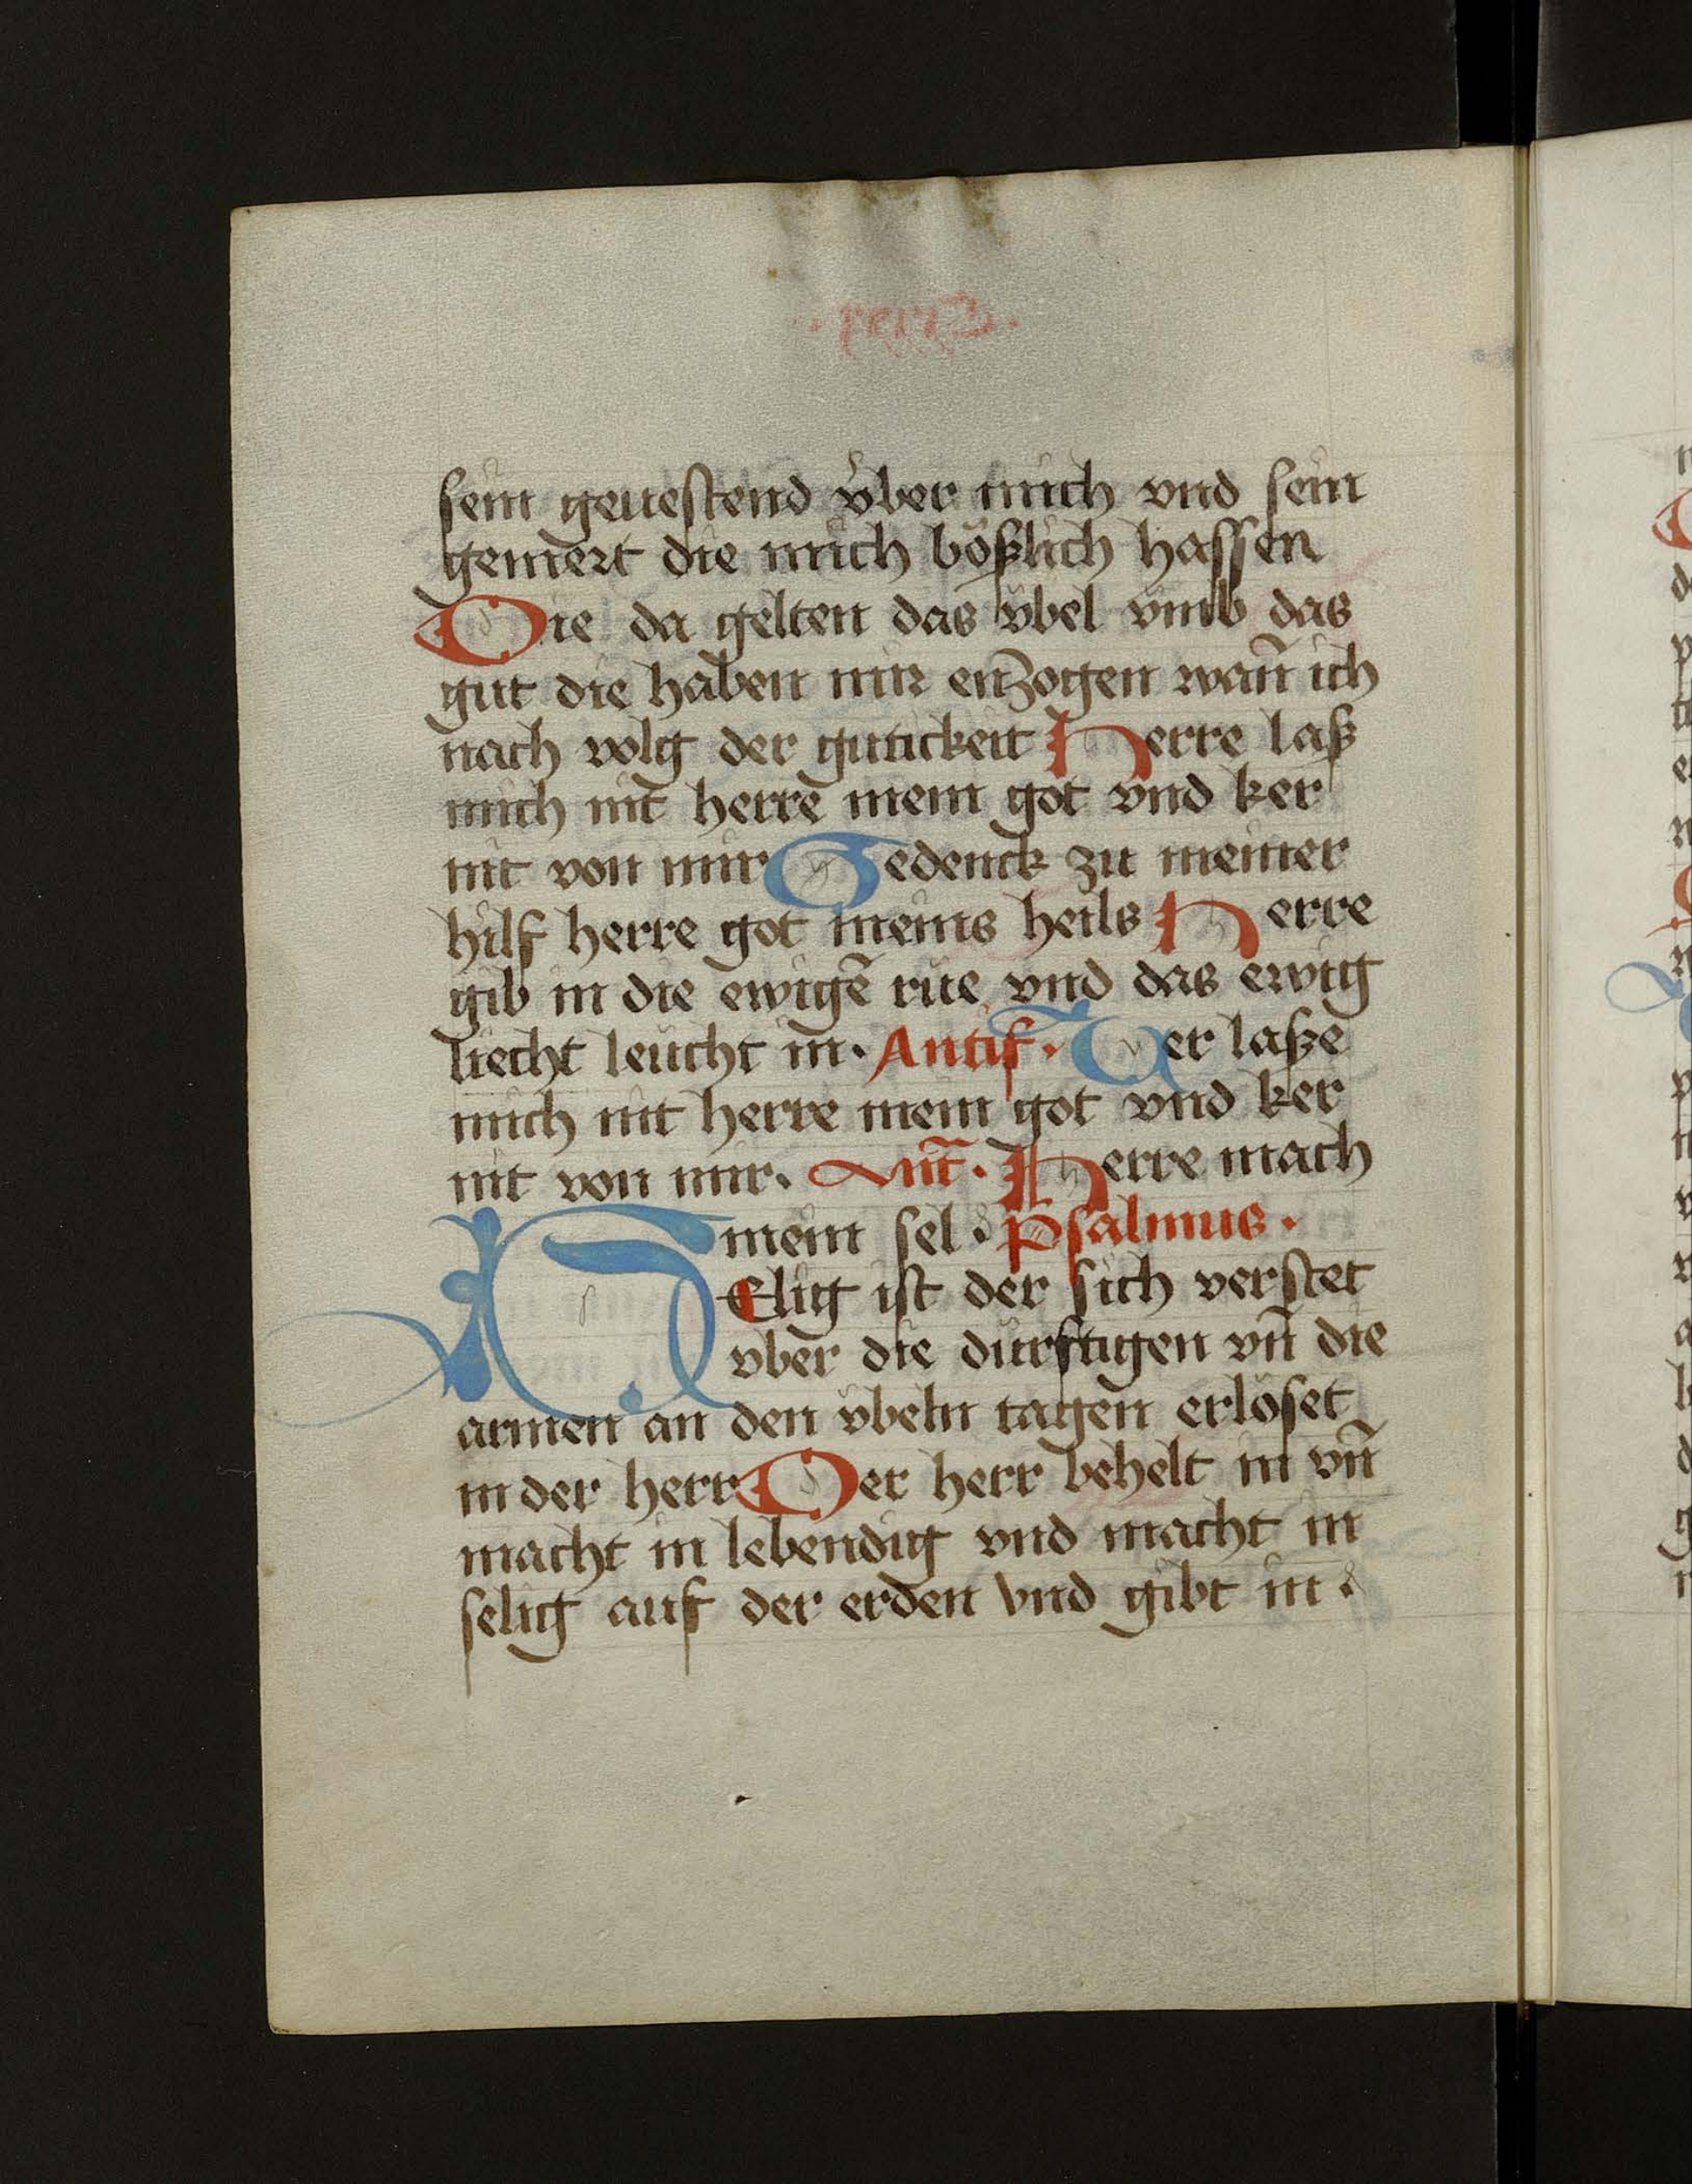 sein geuestend vͤber mich vnd sein
gemert die mich bößlich hassen
Die da gelten das vͤbel vmb das
gut die haben mir enzogen wañ ich
nach volg der gutickeit Herre laß
mich nit herre mein got vnd ker
nit von mir Gedenck zu meiner
hilf herre got meins heils Herre
gib in die ewigē rue vnd das ewig
liecht leucht in. Antif. Ver laße
mich nit herre mein got vnd ker
nit von mir. Ant̄. Herre mach
mein sel. Psalmus.
SElig ist der sich verstet
vber die durftigen vn̄ die
armen an den vbeln tagen erlöset
in der herr Der herr behelt in vn̄
macht in lebendig vnd macht in
selig auf der erden vnd gibt in